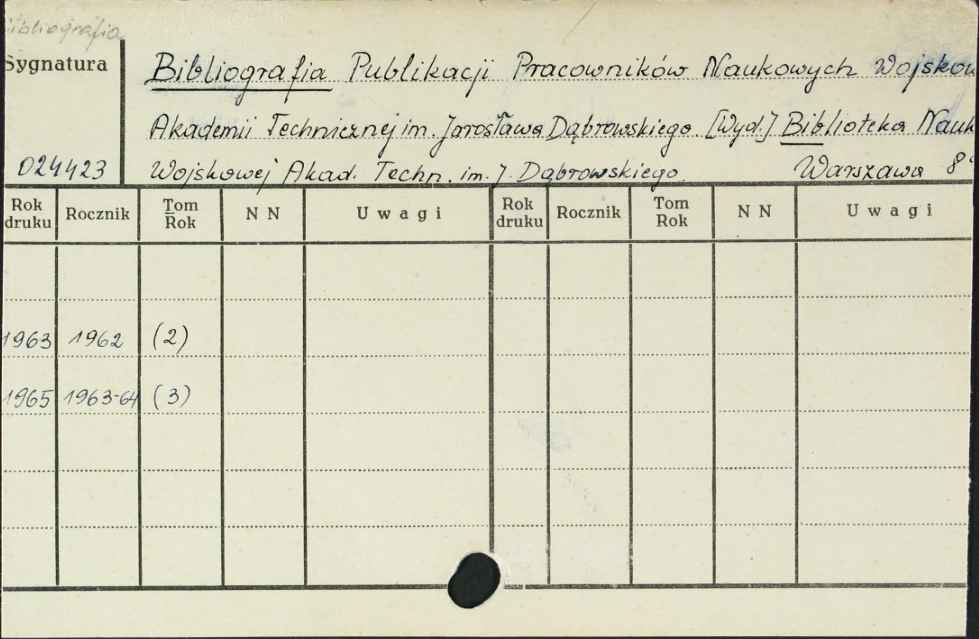 Bibliografia
Sygnatura
Bibliografia Publikacji Pracowników Naukowych Wojskow
Akademii Technicznej im. Jarosława Dąbrowskiego. [Wyd.] Biblioteka Nauk
024423
Wojskowej Akad. Techn. im. J. Dąbrowskiego. Warszawa 8°
Rok druku Rocznik Tom Rok N N Uwagi Rok druku Rocznik Tom Rok N N Uwagi
1963 1962 (2)
1965 1963-64 (3)